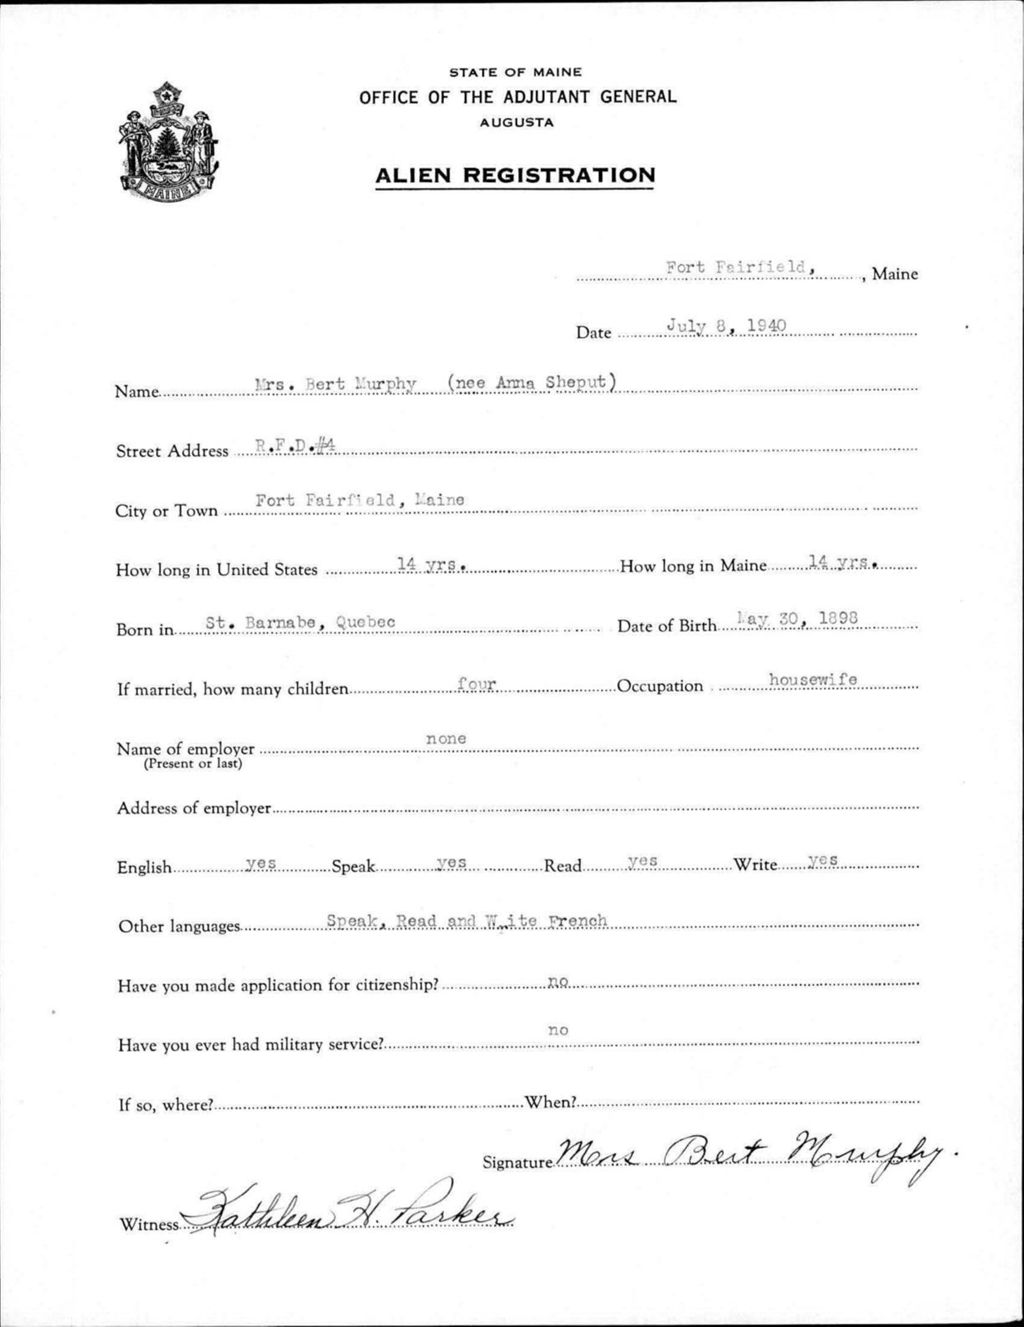 STATE OF MAINE
OFFICE OF THE ADJUTANT GENERAL
AUGUSTA
ALIEN REGISTRATION
MAINE
Fort Fairfield, , Maine
Date July 8, 1940
Name Mrs. Bert Murphy (nee Anna Sheput)
Street Address R.F.D.#4
City or Town Fort Fairfield, Maine
How long in United States 14 yrs. How long in Maine 14 yrs.
Born in St. Barnabe, Quebec Date of Birth May 30, 1898
If married, how many children four Occupation housewife
Name of employer none
(Present or last)
Address of employer
English yes Speak yes Read yes Write yes
Other languages Speak, Read and Write French
Have you made application for citizenship? no
Have you ever had military service? no
If so, where? When?
Signature Mrs Bert Murphy.
Witness Kathleen H. Parker